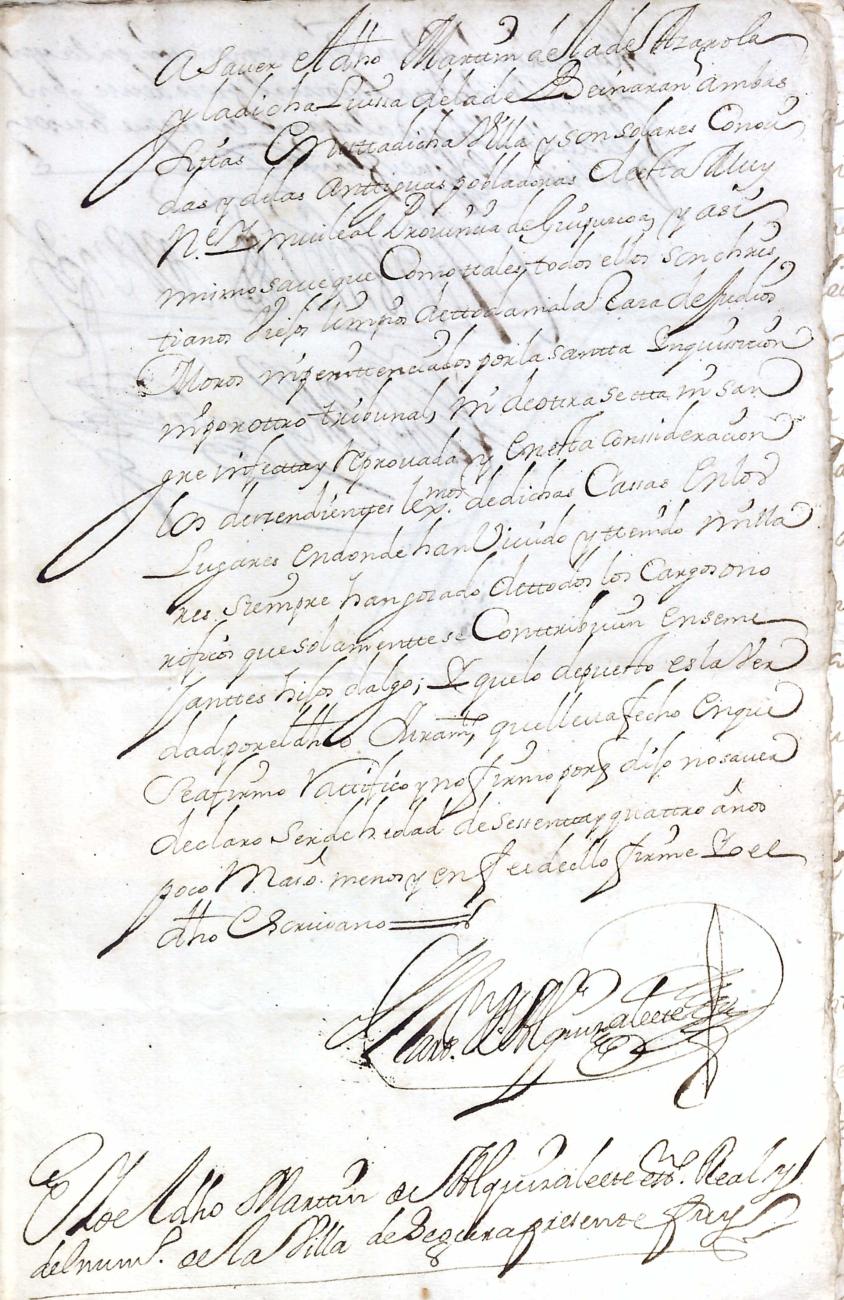 A Saver el dho Martin de la de Azarola
y la dicha Luisa de la de Beinaran ambas
sittas En esta dicha Villa y son solares Conoci
das y de las anttiguas pobladoras de esta Muy
N.e y mui leal Provincia de Guipuzcoa, y asi
mismo save que Como ttales todos ellos son chris
tianos viejos limpios de ttoda mala Raza de Judios
Moros ni penittenciados por la santta Inquisicion
ni por ottro tribunal, ni de otra sectta ni san
gre infectta y reprovada y en esta consideracion
los desendienttes lexmos. de dichas Cassas En los
Lugares en donde han Vivido y ttenido milla
res siempre han gozado de ttodos los Cargos ono
rificos que solamentte se Conttribuien en seme
janttes hijos dalgo; Y que lo depuesto es la ver
dad por el dho Juramto, que lleva fecho en que
se afirmo Rattifico y no firmo porq dijo no saver
declaro ser de hedad de sessentta y quattro años
poco Mas o menos y en fee de ello firme Yo el
dho Escrivano
Marn. de Alquizalete
E Yo el dho Martin de Alquizalete esno. Real y
del numo. de la Villa de Segura presente fuy